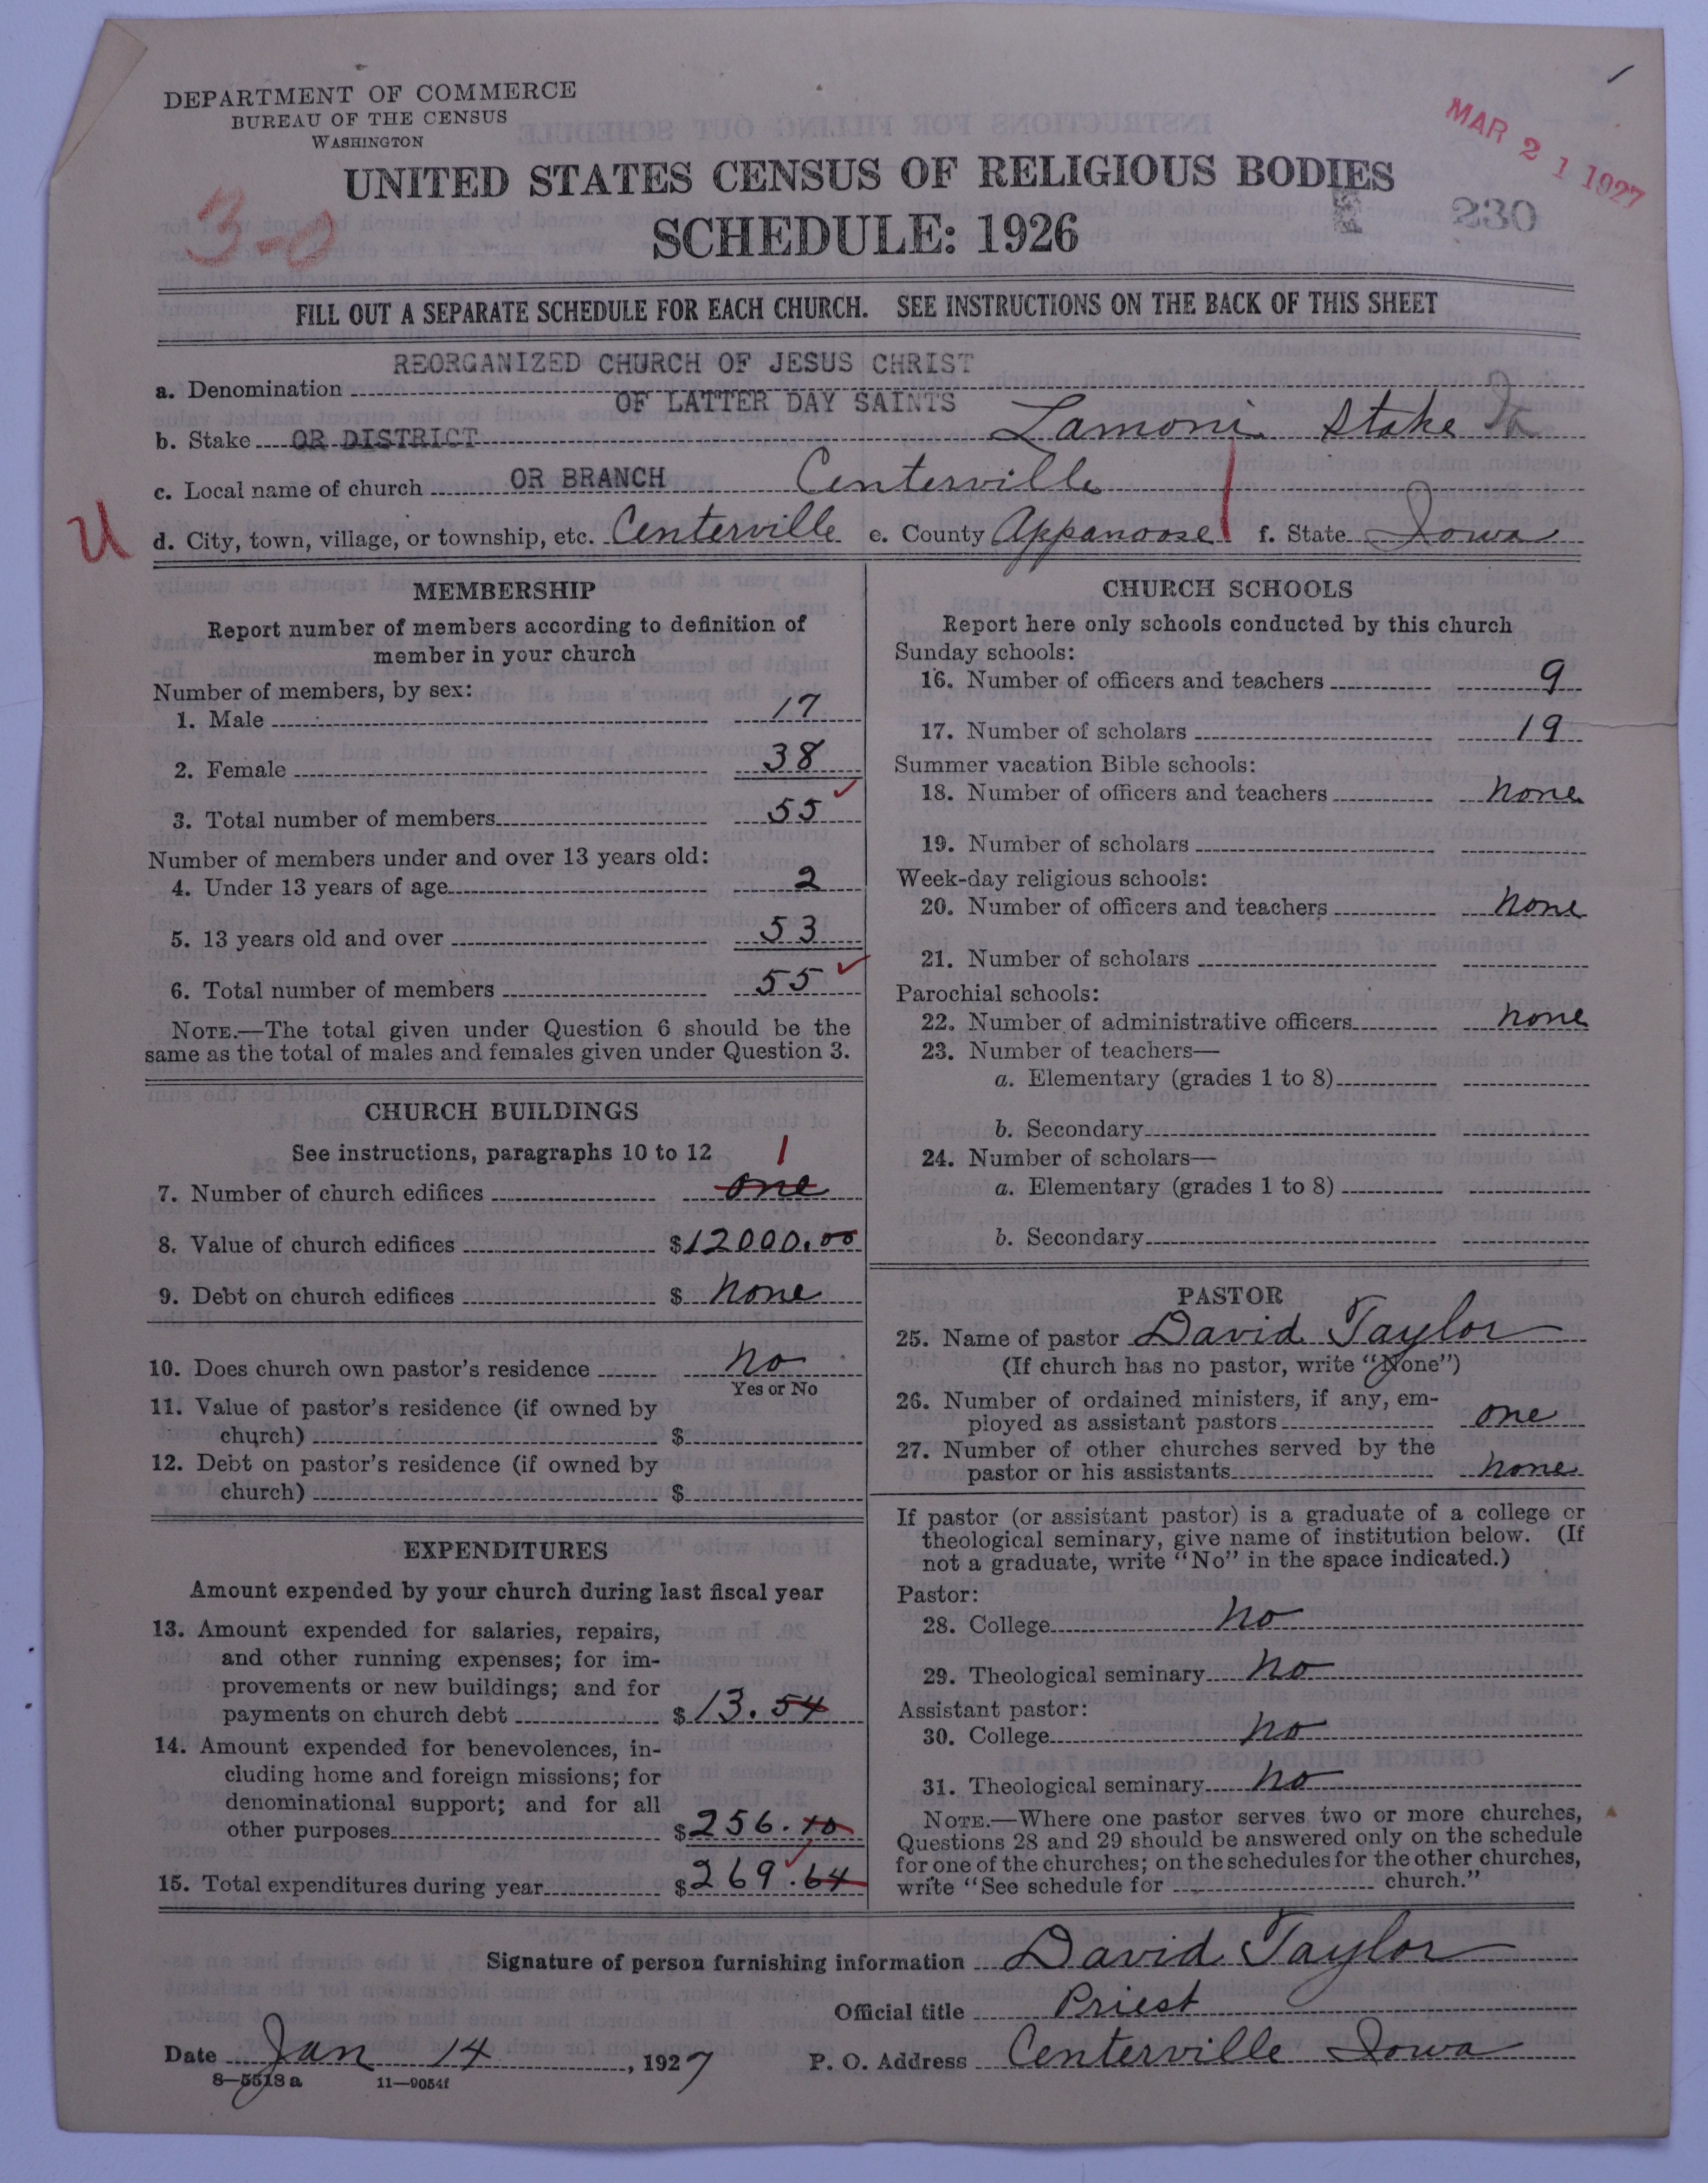 DEPARTMENT OF COMMERCE
BUREAU OF THE CENSUS
WASHINGTON
MAR 21 1927
UNITED STATES CENSUS OF RELIGIOUS BODIES
SCHEDULE: 1926
230
3-0
FILL OUT A SEPARATE SCHEDULE FOR EACH CHURCH. SEE INSTRUCTIONS ON THE BACK OF THIS SHEET
REORGANIZED CHURCH OF JESUS CHRIST
a. Denomination
OF LATTER DAY SAINTS
b. Stake OR DISTRICT Lamoni Stake Ia
c. Local name of church OR BRANCH Centerville
U
d. City, town, village, or township, etc. Centerville e. County Appanoose f. State Iowa
MEMBERSHIP
Report number of members according to definition of
member in your church
Number of members, by sex:
1. Male 17
2. Female 38
3. Total number of members 55
Number of members under and over 13 years old:
4. Under 13 years of age 2
5. 13 years old and over 53
6. Total number of members 55
NOTE.—The total given under Question 6 should be the
same as the total of males and females given under Question 3.
CHURCH BUILDINGS
See instructions, paragraphs 10 to 12
1
7. Number of church edifices one
8. Value of church edifices $12000.00
9. Debt on church edifices $ none
10. Does church own pastor's residence no
Yes or No
11. Value of pastor's residence (if owned by
church) $
12. Debt on pastor's residence (if owned by
church) $
EXPENDITURES
Amount expended by your church during last fiscal year
13. Amount expended for salaries, repairs,
and other running expenses; for im-
provements or new buildings; and for
payments on church debt $13.54
14. Amount expended for benevolences, in-
cluding home and foreign missions; for
denominational support; and for all
other purposes $256.10
15. Total expenditures during year $269.64
CHURCH SCHOOLS
Report here only schools conducted by this church
Sunday schools:
16. Number of officers and teachers 9
17. Number of scholars 19
Summer vacation Bible schools:
18. Number of officers and teachers none
19. Number of scholars
Week-day religious schools:
20. Number of officers and teachers none
21. Number of scholars
Parochial schools:
22. Number of administrative officers none
23. Number of teachers—
a. Elementary (grades 1 to 8)
b. Secondary
24. Number of scholars—
a. Elementary (grades 1 to 8)
b. Secondary
PASTOR
25. Name of pastor David Taylor
(If church has no pastor, write "None")
26. Number of ordained ministers, if any, em-
ployed as assistant pastors one
27. Number of other churches served by the
pastor or his assistants none
If pastor (or assistant pastor) is a graduate of a college or
theological seminary, give name of institution below. (If
not a graduate, write "No" in the space indicated.)
Pastor:
28. College no
29. Theological seminary no
Assistant pastor:
30. College no
31. Theological seminary no
NOTE.—Where one pastor serves two or more churches,
Questions 28 and 29 should be answered only on the schedule
for one of the churches; on the schedules for the other churches,
write "See schedule for church."
Signature of person furnishing information David Taylor
Official title Priest
Date Jan 14, 1927 P. O. Address Centerville Iowa
8—5518a 11—9054f